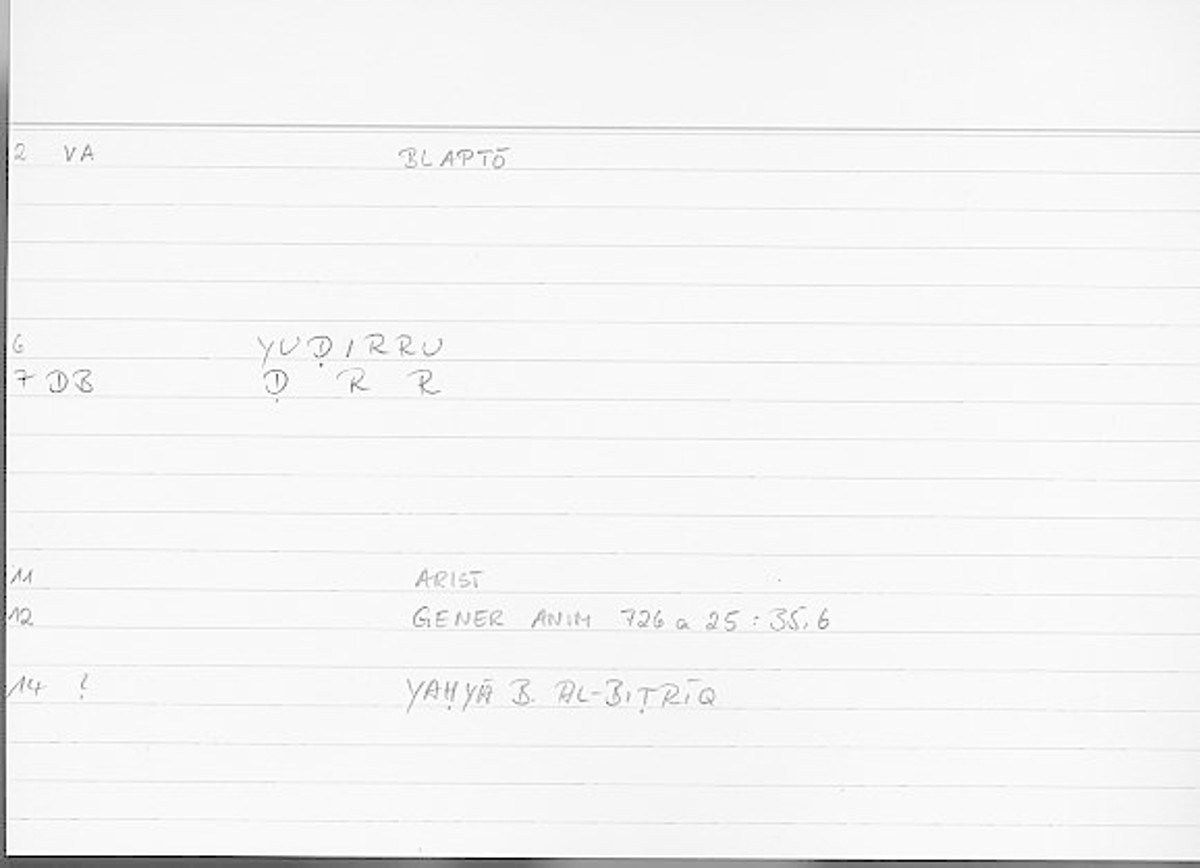 2 VA BLAPTŌ
6 YUḌIRRU
7 DB Ḍ R R
11 ARIST
12 GENER ANIM 726 a 25 : 35,6
14 ? YAḤYĀ B. AL-BIṬRĪQ